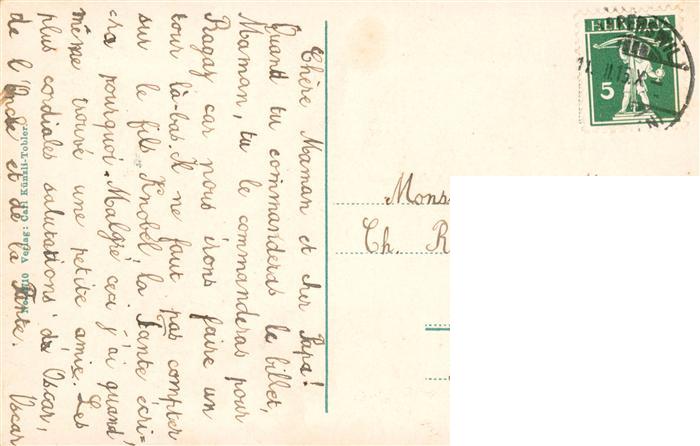 Chère Maman et cher Papa!
Quand tu commanderas le billet,
Maman, tu le commanderas pour
Ragaz car nous irons faire un
tour là-bas. Il ne faut pas compter
sur le fils Knobel, la Tante écri-
ra pourquoi. Malgré ceci j'ai quand
même trouvé une petite amie. Les
plus cordiales salutations de Oscar,
de l'Oncle et de la Tante. Oscar
Verlag: Carl Künzli-Tobler
HELVETIA
5
Mons
Ch. R